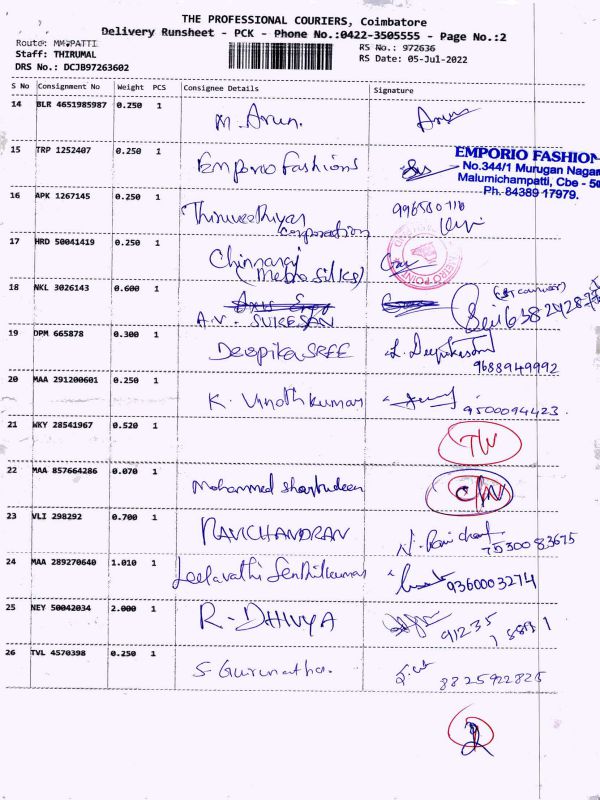 THE PROFESSIONAL COURIERS, Coimbatore
Delivery Runsheet - PCK - Phone No.:0422-3505555 - Page No.:2
Route: MM:PATTI
Staff: THIRUMAL
DRS No.: DCJB97263602
RS No.: 972636
RS Date: 05-Jul-2022
S No Consignment No Weight PCS Consignee Details Signature
14 BLR 4651985987 0.250 1 M. Arun. Arun
15 TRP 1252407 0.250 1 Emporio Fashions
EMPORIO FASHION
No.344/1 Murugan Nagar
Malumichampatti, Cbe - 
Ph. 84389 17979.
16 APK 1267145 0.250 1 Thiruvethiyar corporation
17 HRD 50041419 0.250 1 Chinnaraj (Metro silks)
18 NKL 3026143 0.600 1 A.V. SUKESAN
19 DPM 665878 0.300 1 Deepika SREE L. Deepika
9688949992
20 MAA 291200601 0.250 1 K. Vinoth kumar
9500094423.
21 WKY 28541967 0.520 1 TW
22 MAA 857664286 0.070 1 Mohammed Sharbudeen
23 VLI 298292 0.700 1 RAVICHANDRAN
7530083675
24 MAA 289270640 1.010 1 Leelavathi Senthilkumar 9360003274
25 NEY 50042034 2.000 1 R-DHIVYA 91235
26 TVL 4570398 0.250 1 S Gurunatha.
8825922825